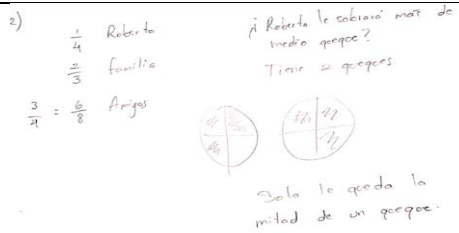 2)
1/4 Roberto
2/3 familia
3/4 = 6/8 Amigos
¿ Roberto le sobrará más de
medio queque?
Tiene 2 queques.
Solo le queda la
mitad de un queque.